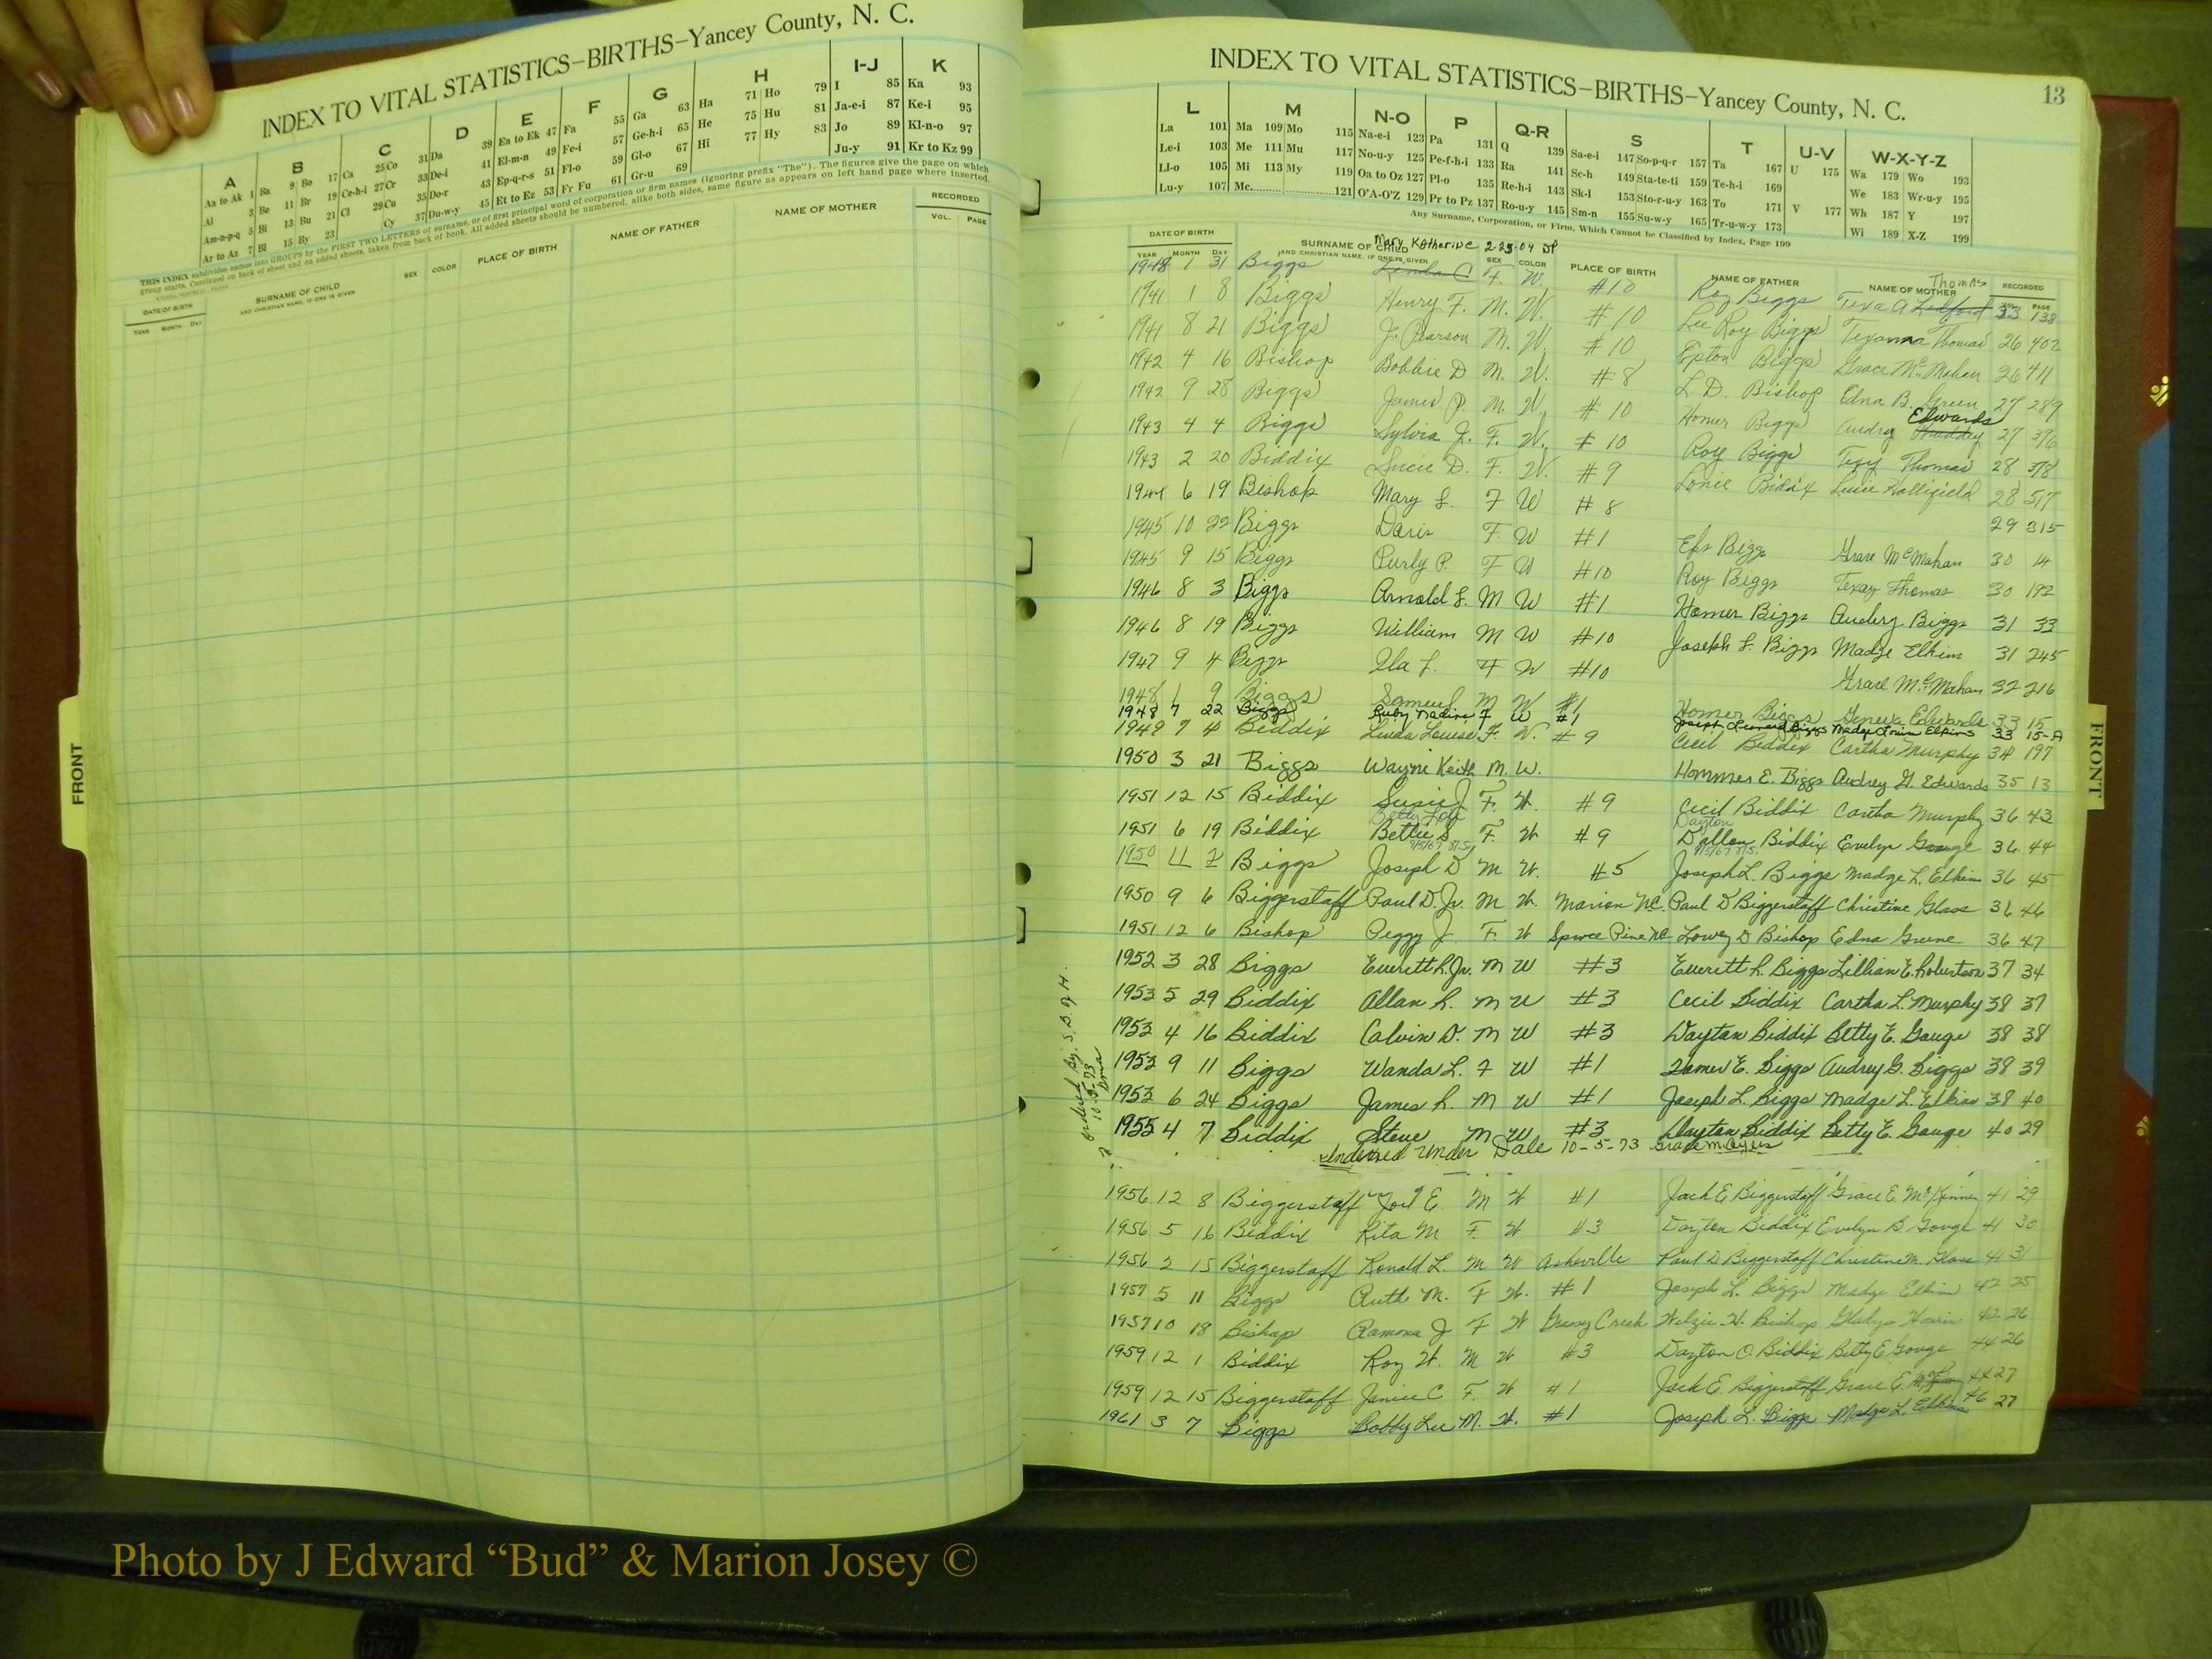 INDEX TO VITAL STATISTICS–BIRTHS–Yancey County, N. C.
A B C D E F G H I-J K
Aa to Ak 1 Ba 9 Bo 17 Ca 25 Co 31 Da 39 Ea to Ek 47 Fa 55 Ga 63 Ha 71 Ho 79 I 85 Ka 93
Al 3 Be 11 Br 19 Ce-h-i 27 Cr 33 De-i 41 El-m-n 49 Fe-i 57 Ge-h-i 65 He 75 Hu 81 Ja-e-i 87 Ke-i 95
Am-n-p-q 5 Bi 13 Bu 21 Cl 29 Cu 35 Do-r 43 Ep-q-r-s 51 Fl-o 59 Gl-o 67 Hi 77 Hy 83 Jo 89 Kl-n-o 97
Ar to Az 7 Bl 15 By 23 Cy 37 Du-w-y 45 Et to Ez 53 Fr Fu 61 Gr-u 69 Ju-y 91 Kr to Kz 99
THIS INDEX subdivides names into GROUPS by the FIRST TWO LETTERS of surname, or of first principal word of corporation or firm names (ignoring prefix "The"). The figures give the page on which
group starts. Continued on back of sheet and on added sheets, taken from back of book. All added sheets should be numbered, alike both sides, same figure as appears on left hand page where inserted.
DATE OF BIRTH SURNAME OF CHILD SEX COLOR PLACE OF BIRTH NAME OF FATHER NAME OF MOTHER RECORDED
YEAR MONTH DAY AND CHRISTIAN NAME, IF ONE IS GIVEN VOL. PAGE
FRONT
13
INDEX TO VITAL STATISTICS–BIRTHS–Yancey County, N. C.
L M N-O P Q-R S T U-V W-X-Y-Z
La 101 Ma 109 Mo 115 Na-e-i 123 Pa 131 Q 139 Sa-e-i 147 So-p-q-r 157 Ta 167 U 175 Wa 179 Wo 193
Le-i 103 Me 111 Mu 117 No-u-y 125 Pe-f-h-i 133 Ra 141 Sc-h 149 Sta-te-ti 159 Te-h-i 169 We 183 Wr-u-y 195
Ll-o 105 Mi 113 My 119 Oa to Oz 127 Pl-o 135 Re-h-i 143 Sk-l 153 Sto-r-u-y 163 To 171 V 177 Wh 187 Y 197
Lu-y 107 Mc 121 O'A-O'Z 129 Pr to Pz 137 Ro-u-y 145 Sm-n 155 Su-w-y 165 Tr-u-w-y 173 Wi 189 X-Z 199
Any Surname, Corporation, or Firm, Which Cannot be Classified by Index, Page 199
DATE OF BIRTH SURNAME OF CHILD PLACE OF BIRTH NAME OF FATHER NAME OF MOTHER RECORDED
YEAR MONTH DAY AND CHRISTIAN NAME, IF ONE IS GIVEN SEX COLOR VOL. PAGE
Mary Katherine 2-23-04
Thomas
1948 1 31 Biggs Linda C F. W. #10 Roy Biggs Texa A Ledford 33 138
1941 1 8 Biggs Henry F. M. W. #10 Lee Roy Biggs Texanna Thomas 26 402
1941 8 21 Biggs J. Pearson M. W. #10 Epton Biggs Grace McMahan 26 411
1942 4 16 Bishop Bobbie D M. W. #8 L. D. Bishop Edna B. Green 27 289
1942 9 28 Biggs James P. M. W. #10 Homer Biggs Audry Edwards 27 376
1943 4 4 Biggs Sylvia J. F. W. #10 Roy Biggs Texy Thomas 28 378
1943 2 20 Biddix Lucie D. F. W. #9 Lonie Biddix Lucie Hollifield 28 517
1944 6 19 Bishop Mary L. F W #8 29 315
1945 10 22 Biggs Doris F W #1 Eps Biggs Grace McMahan 30 14
1945 9 15 Biggs Purly P. F W #10 Roy Biggs Texas Thomas 30 192
1946 8 3 Biggs Arnold L. M W #1 Homer Biggs Audery Biggs 31 33
1946 8 19 Biggs William M W #10 Joseph L. Biggs Madge Elkins 31 245
1947 9 4 Biggs Ila F. F W #10 Grace McMahan 32 216
1948 1 9 Biggs Samuel M W #1 Homer Biggs Geneva Edwards 33 15
1948 7 22 Biggs Ruby Nadine F W #1 Joseph Leonard Biggs Madge Louise Elkins 33 15-A
1949 7 4 Biddix Linda Louise F. W. #9 Cecil Biddix Cartha Murphy 34 197
1950 3 21 Biggs Wayne Keith M. W. Hommer E. Biggs Audrey G. Edwards 35 13
1951 12 15 Biddix Susie J F. W. #9 Cecil Biddix Cartha Murphy 36 43
Dayton
1951 6 19 Biddix Bettie S. F. W #9 Dallon Biddix Evelyn Gouge 36 44
1950 11 2 Biggs Joseph D M W. #5 Joseph L. Biggs Madge L. Elkins 36 45
1950 9 6 Biggerstaff Paul D. Jr. M W. Marion NC. Paul D Biggerstaff Christine Glass 36 46
1951 12 6 Bishop Peggy J. F. W Spruce Pine NC Lowey D Bishop Edna Greene 36 47
1952 3 28 Biggs Everett R. Jr. M W #3 Everett R. Biggs Lillian E. Robertson 37 34
1953 5 29 Biddix Allan R. M W #3 Cecil Biddix Cartha L. Murphy 38 37
1953 4 16 Biddix Calvin D. M W #3 Dayton Biddix Betty E. Gouge 38 38
1953 9 11 Biggs Wanda L. F W #1 Homer E. Biggs Audrey G. Biggs 38 39
1953 6 24 Biggs James R. M W #1 Joseph L. Biggs Madge L. Elkins 38 40
1955 4 7 Biddix Steve M W #3 Dayton Biddix Betty E. Gouge 40 29
Under Date 10-5-73 Grace M. Ayers
1956 12 8 Biggerstaff Joel E. M W #1 Jack E Biggerstaff Grace E. McKinney 41 29
1956 5 16 Biddix Rita M F. W #3 Dayton Biddix Evelyn B. Gouge 41 30
1956 2 15 Biggerstaff Ronald L. M W Asheville Paul D Biggerstaff Christine M. Glass 41 31
1957 5 11 Biggs Ruth M. F W. #1 Joseph L. Biggs Madge Elkins 42 25
1957 10 18 Bishop Ramona J F W Grassy Creek H. Bishop Gladys 42 26
1959 12 1 Biddix Roy W. M W #3 Dayton O. Biddix Betty E Gouge 44 26
1959 12 15 Biggerstaff Janice C F. W #1 Jack E. Biggerstaff Grace E. 44 27
1961 3 7 Biggs Bobby Lee M. W. #1 Joseph L. Biggs Madge L. Elkins 46 27
FRONT
Photo by J Edward “Bud” & Marion Josey ©